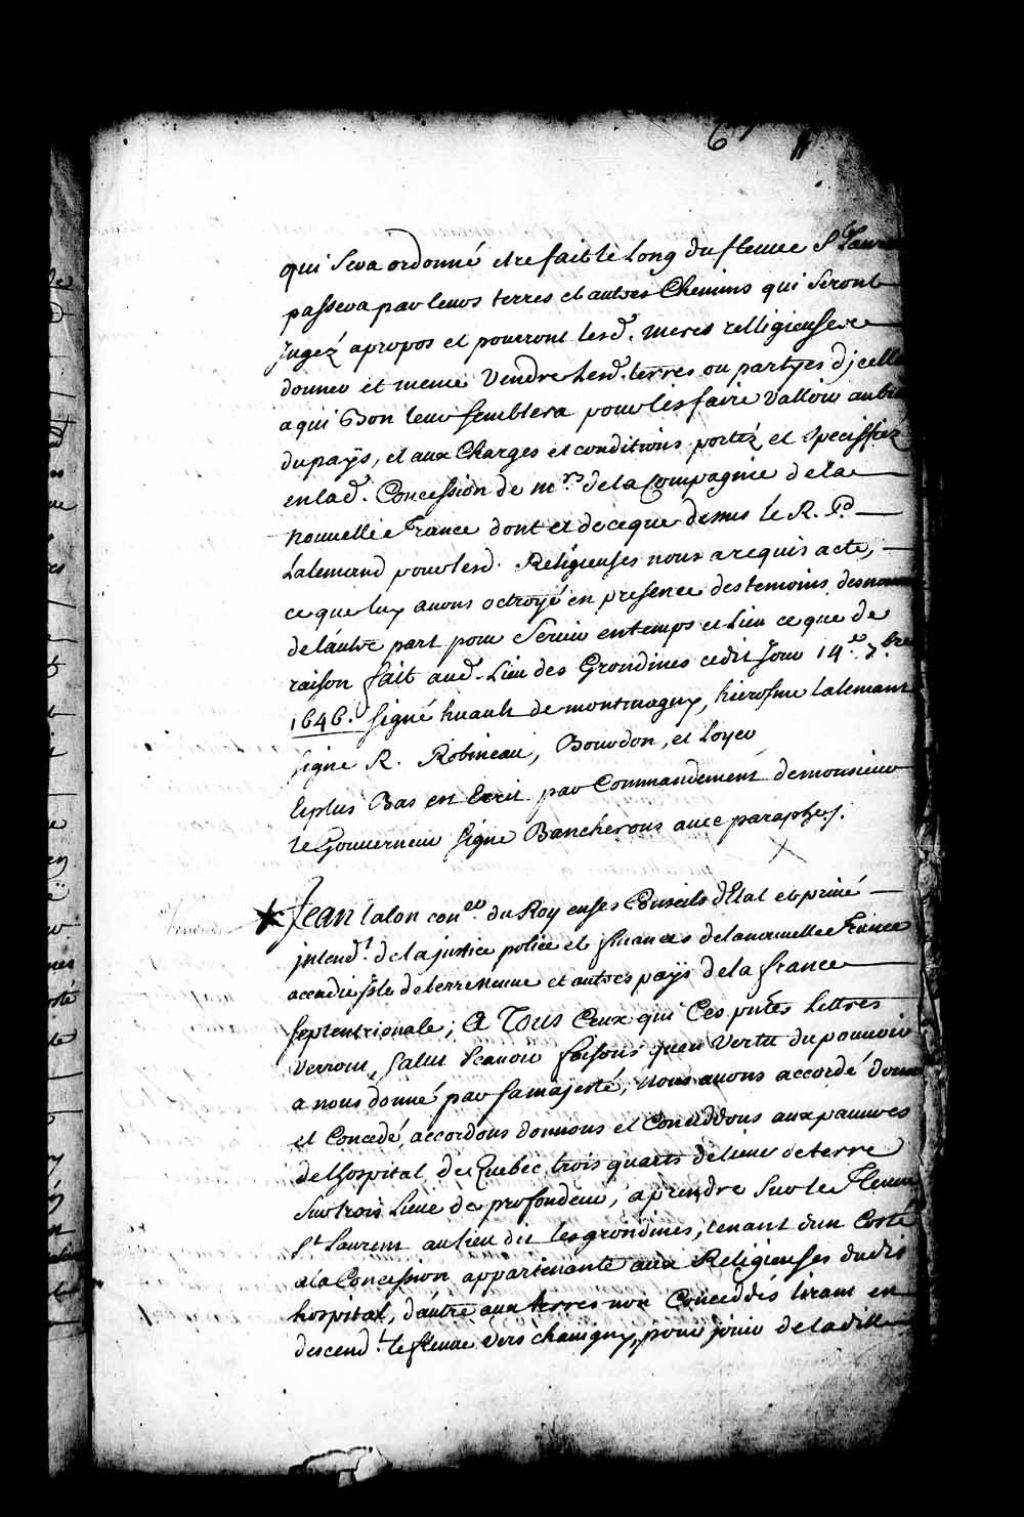 67
qui sera ordonné etre fait le Long du fleuue St Laur
passera par leurs terres et autres Chemins qui seront
Jugez apropos et pourront lesd. meres relligieuses
donner et meme Vendre lesd. terres ou partyes djcell
a qui Bon leur semblera pour les faire Valloir au bi
du païs, et aux Charges et conditions portéz et specissiez
en lad. Concession de mrs de la Compagnie de la
nouuelle france dont et de ceque dessus le R. Pd
Lalemand pour lesd. Religieuses nous a requis acte,
ce que luy auons octroyé en presence des temoins desnom
de l'autre part pour Seruir en temps et Lieu ce que de
raison fait aud. Lieu des Grondines cedit Jour 14e 7bre
1646. signé huault de montmagny, hierosme lalemant
signe R. Robineau, Bourdon, et Loyer
Et plus Bas est Ecrit par Commandement de monsieur
le Gouuerneur signe Bancherons auec paraphes.
Jean talon coner du Roy en ses Conseils d'Etat et priué
jntendt de la justice police et finances de la nouuelle France
accadie jsle de terreneuue et autres païs de la france
septentrionale; A Tous Ceux qui Ces pntes Lettres
verront, salut scauoir faisons qu'en Vertu du pouuoir
a nous donné par sa majesté, nous auons accordé donn
et Concedé, accordons donnons et Conceddons aux pauures
de l'hospital de Quebec trois quarts de lieue de terre
sur trois Lieue de profondeur, a prendre sur le Fleuue
St Laurent au lieu dit les grondines, tenant d'un Costé
a la Concession appartenante aux Religieuses dudit
hospital, d'autre aux terres non Conceddés tirant en
descendt le fleuue vers chauigny, pour jouir de la dille